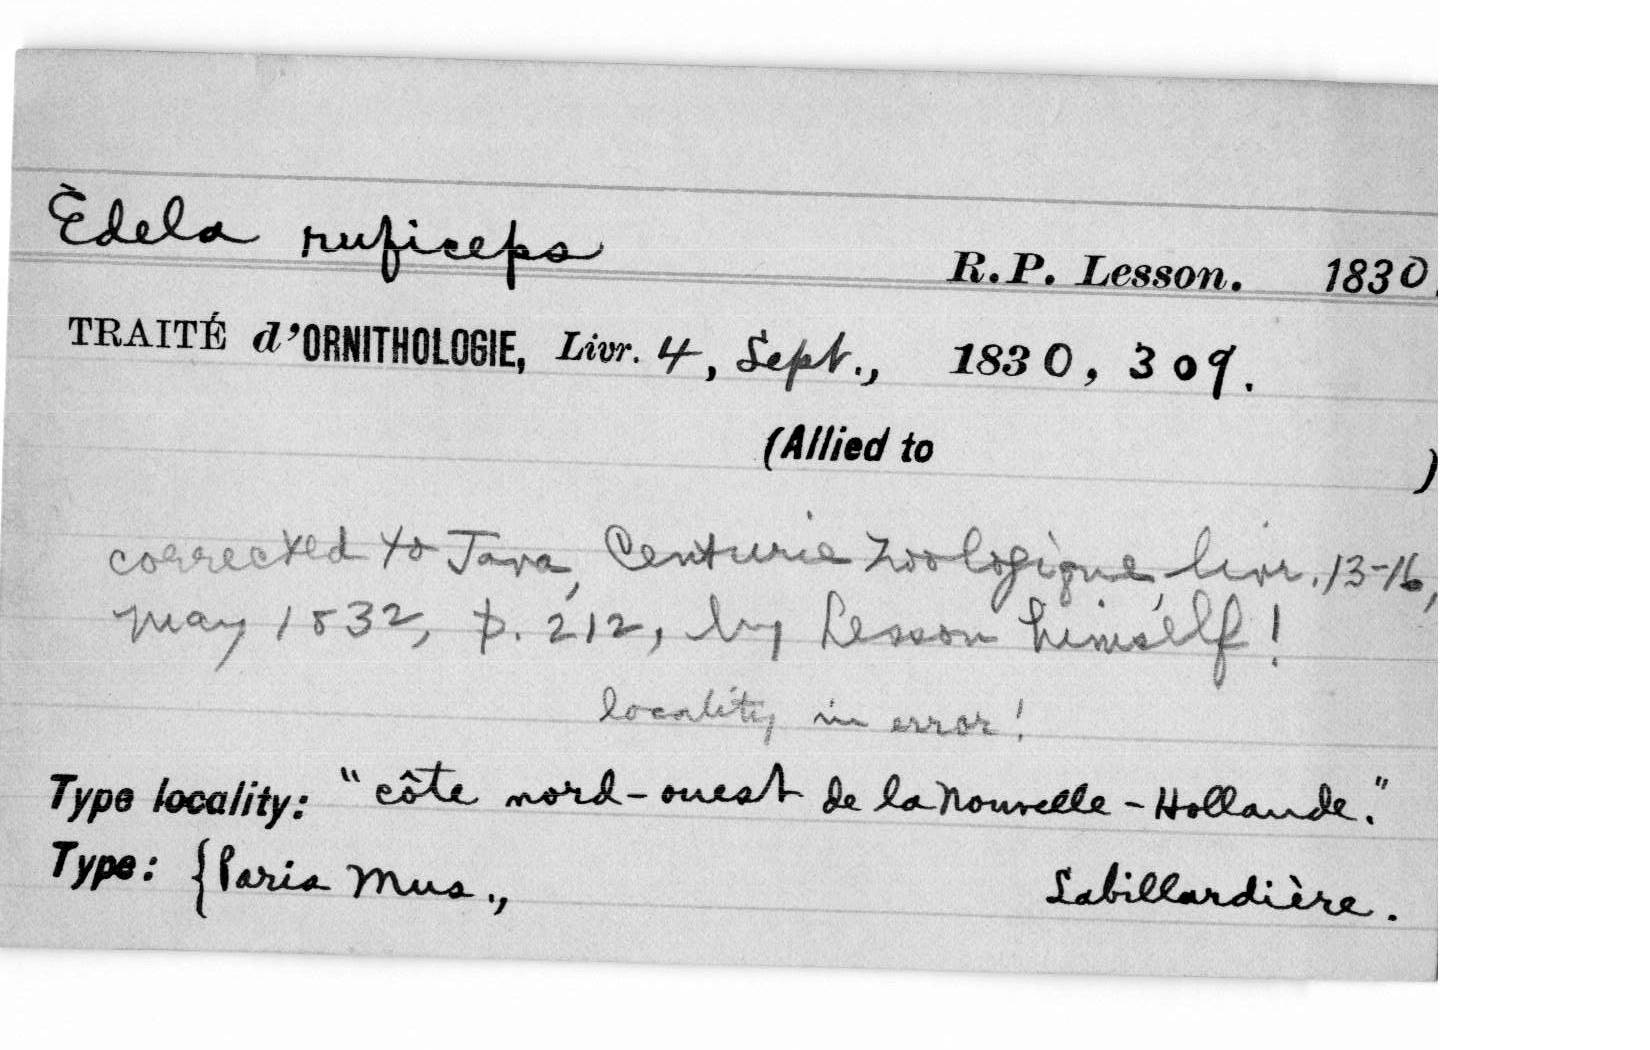 Èdela ruficeps R.P. Lesson. 1830.
TRAITÉ d'ORNITHOLOGIE, Livr. 4, Sept., 1830, 309.
(Allied to )
corrected to Java, Centurie Zoologique, livr. 13-16,
May 1832, p. 212, by Lesson himself!
locality in error!
Type locality: "côte nord-ouest de la Nouvelle-Hollande."
Type: {Paris Mus., Labillardière.